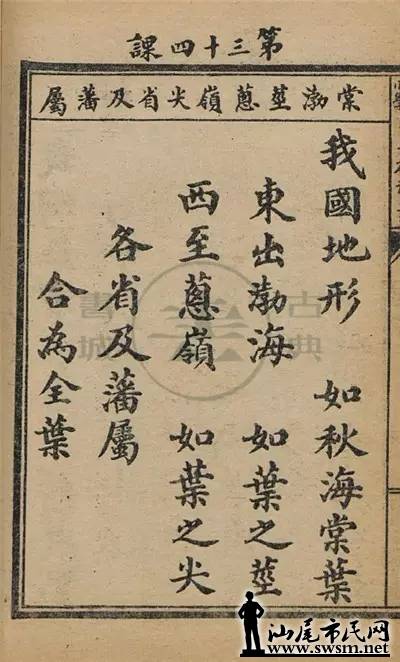 第三十四課
棠渤莖蔥嶺尖省及藩屬
我國地形　如秋海棠葉
東出渤海　如葉之莖
西至蔥嶺　如葉之尖
各省及藩屬
合為全葉
古典書城
汕尾市民网
www.swsm.net